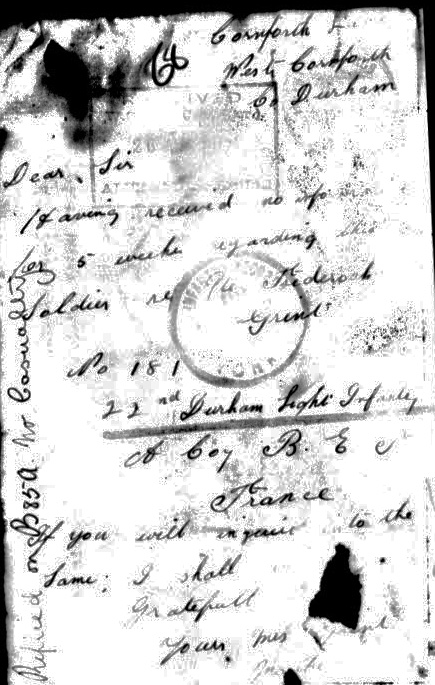 68
Cornforth
West Cornforth
Co Durham
Dear Sir
Having received no info
for 5 weeks regarding this
Soldier re Pte Frederick
Grint
No 181
22nd Durham Light Infantry
A Coy B. E
France
If you will inquire into the
Same. I shall
Gratefull
Yours Mrs
Replied on B85A No Casualty
YORK